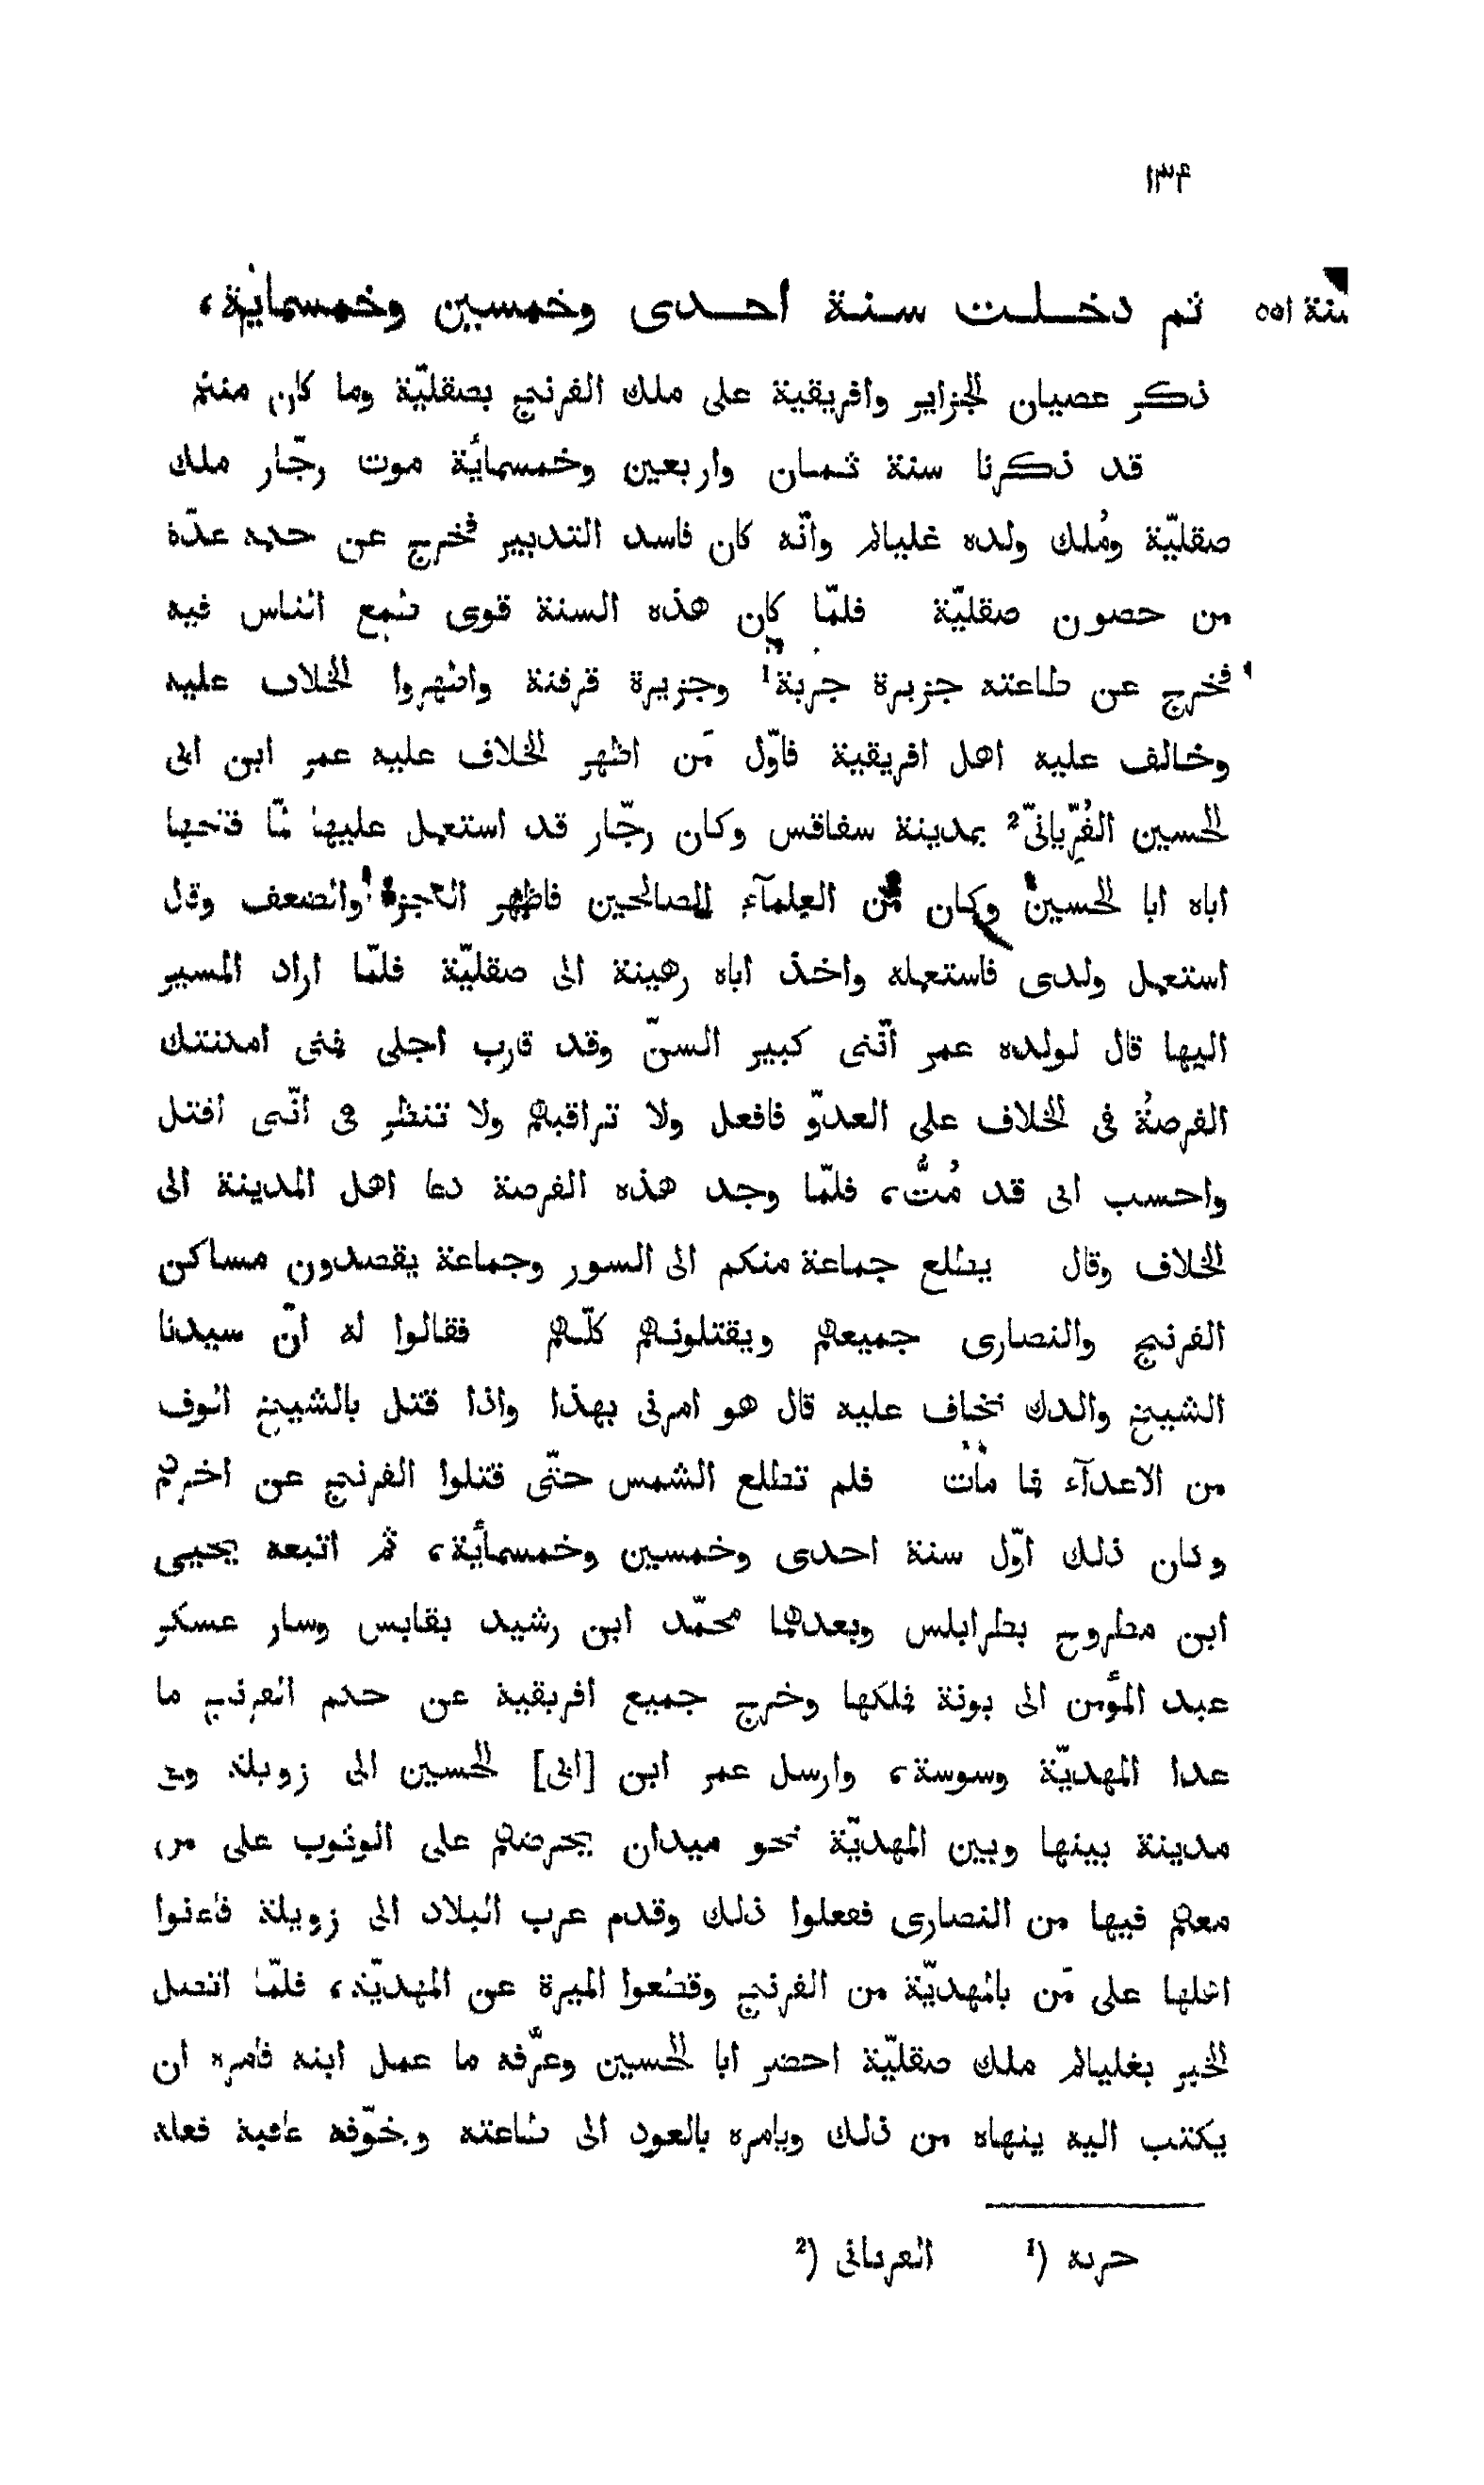 ١٣۴
سنة ٥٥١ ثم دخلت سنة احدى وخمسين وخمسماية،
ذكر عصيان الجزاير وافريقية على ملك الفرنج بصقليّة وما كان منهم
قد ذكرنا سنة ثمان واربعين وخمسمائة موت رجّار ملك
صقليّة ومُلك ولده غليالم وانّه كان فاسد التدبير فخرج عن حكمه عدّة
من حصون صقليّة فلمّا كان هذه السنة قوى طمع الناس فيه
فخرج عن طاعته جزيرة جربة¹ وجزيرة قرقنة واظهروا الخلاف عليه
وخالف عليه اهل افريقية فاوّل مَن اظهر الخلاف عليه عمر ابن ابى
الحسين الفُرّيانىّ² بمدينة سفاقس وكان رجّار قد استعمل عليها لمّا فتحها
اباه ابا الحسين وكان من العلمآء الصالحين فاظهر العجز والضعف وقال
استعمل ولدى فاستعمله واخذ اباه رهينة الى صقليّة فلمّا اراد المسير
اليها قال لولده عمر انّنى كبير السنّ وقد قارب اجلى فمتى امكنتك
الفرصة فى الخلاف على العدوّ فافعل ولا تراقبهم ولا تنظر فى انّنى اقتل
واحسب انى قد مُتُّ، فلمّا وجد هذه الفرصة دعا اهل المدينة الى
الخلاف وقال يطلع جماعة منكم الى السور وجماعة يقصدون مساكن
الفرنج والنصارى جميعهم ويقتلونهم كلّهم فقالوا له انّ سيدنا
الشيخ والدك نخاف عليه قال هو امرنى بهذا واذا قتل بالشيخ الوف
من الاعدآء فما مات فلم تطلع الشمس حتّى قتلوا الفرنج عن اخرهم
وكان ذلك اوّل سنة احدى وخمسين وخمسمأية، ثم اتبعه يحيى
ابن مطروح بطرابلس وبعدهما محمّد ابن رشيد بقابس وسار عسكر
عبد المؤمن الى بونة فملكها وخرج جميع افريقية عن حكم الفرنج ما
عدا المهديّة وسوسة، وارسل عمر ابن [ابى] الحسين الى زويلة وهى
مدينة بينها وبين المهديّة نحو ميدان يحرضهم على الوثوب على من
معهم فيها من النصارى ففعلوا ذلك وقدم عرب البلاد الى زويلة فاعنوا
اهلها على مَن بالمهديّة من الفرنج وقطعوا الميرة عن المهديّة، فلمّا اتصل
الخبر بغليالم ملك صقليّة احضر ابا الحسين وعرّفه ما عمل ابنه فامره ان
يكتب اليه ينهاه من ذلك ويامره بالعود الى طاعته ويخوّفه عاقبة فعله
حربه (¹ العرىانى (²